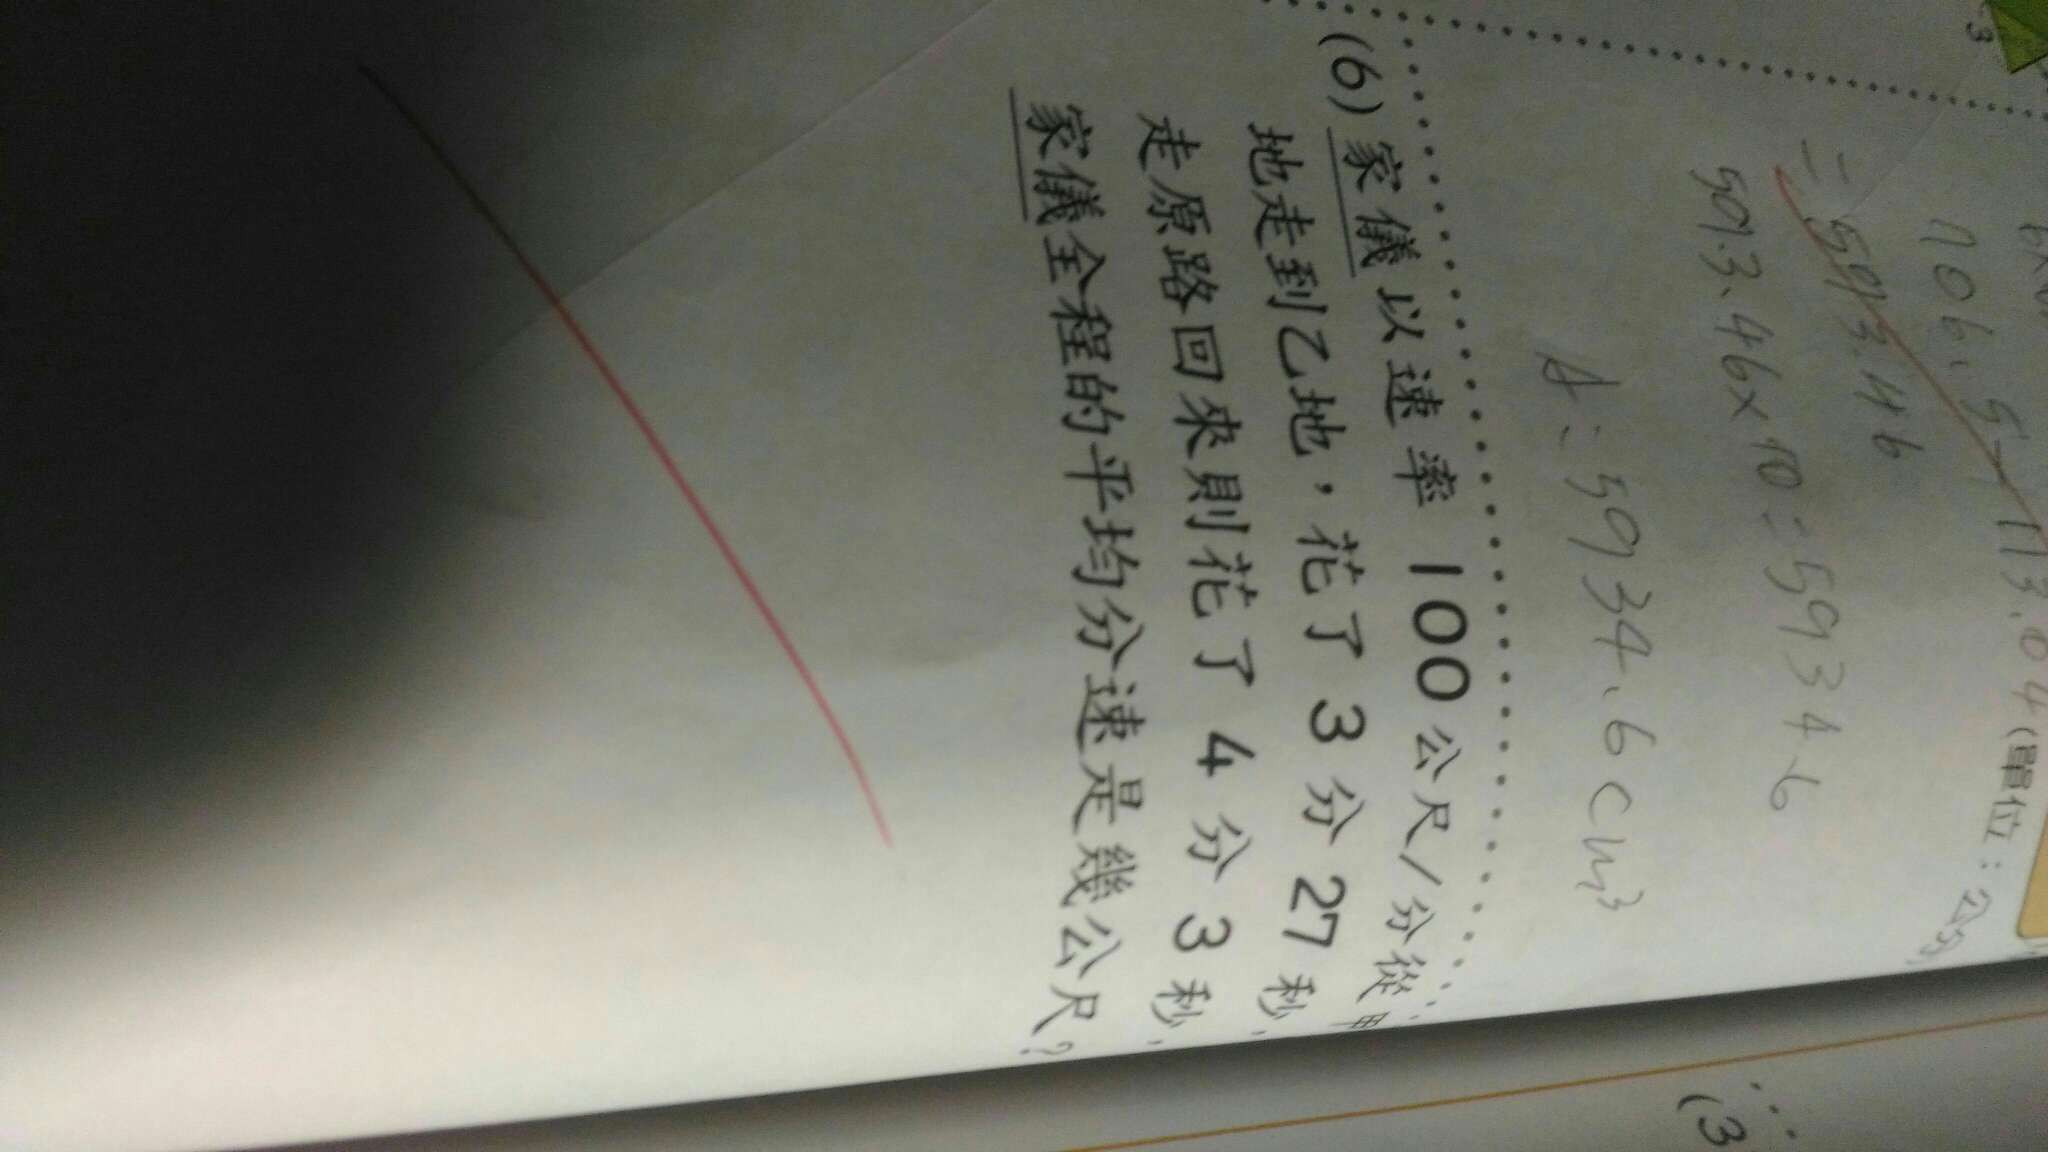 3
706.5-113.04(單位：公分)
=593.46
593.46×10=5934.6
A：5934.6cm³
(6) 家儀以速率 100 公尺/分從甲
地走到乙地，花了 3 分 27 秒，
走原路回來則花了 4 分 3 秒，
家儀全程的平均分速是幾公尺？
(3